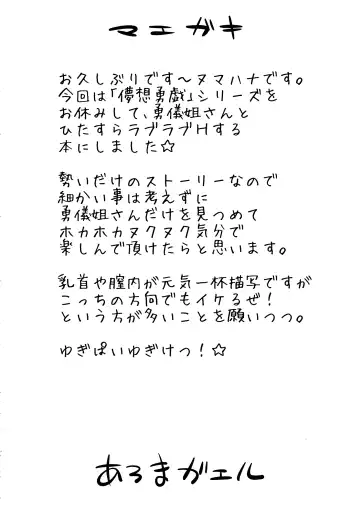 マエガキ
お久しぶりです～ヌマハナです。
今回は「儚想勇戯」シリーズを
お休みして、勇儀姐さんと
ひたすらラブラブHする
本にしました☆
勢いだけのストーリーなので
細かい事は考えずに
勇儀姐さんだけを見つめて
ホカホカヌクヌク気分で
楽しんで頂けたらと思います。
乳首や膣内が元気一杯描写ですが
こっちの方向でもイケるぜ!
という方が多いことを願いつつ。
ゆぎぱいゆぎけつ!☆
あろまガエル